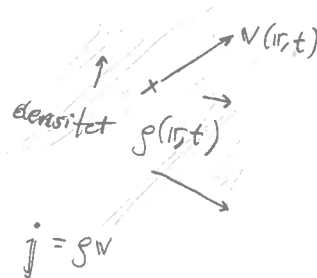 𝕧(𝕣,t)
densitet
ρ(𝕣,t)
𝕛 = ρ𝕧